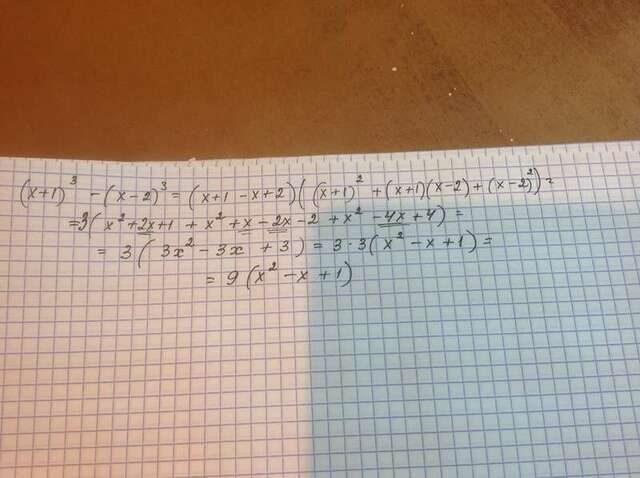 (x+1)³ - (x-2)³ = (x+1 -x+2)((x+1)² +(x+1)(x-2)+(x-2)²) =
=3(x²+2x+1 + x²+x-2x-2 + x² -4x+4) =
= 3(3x²-3x +3) = 3·3(x²-x+1)=
= 9(x²-x+1)